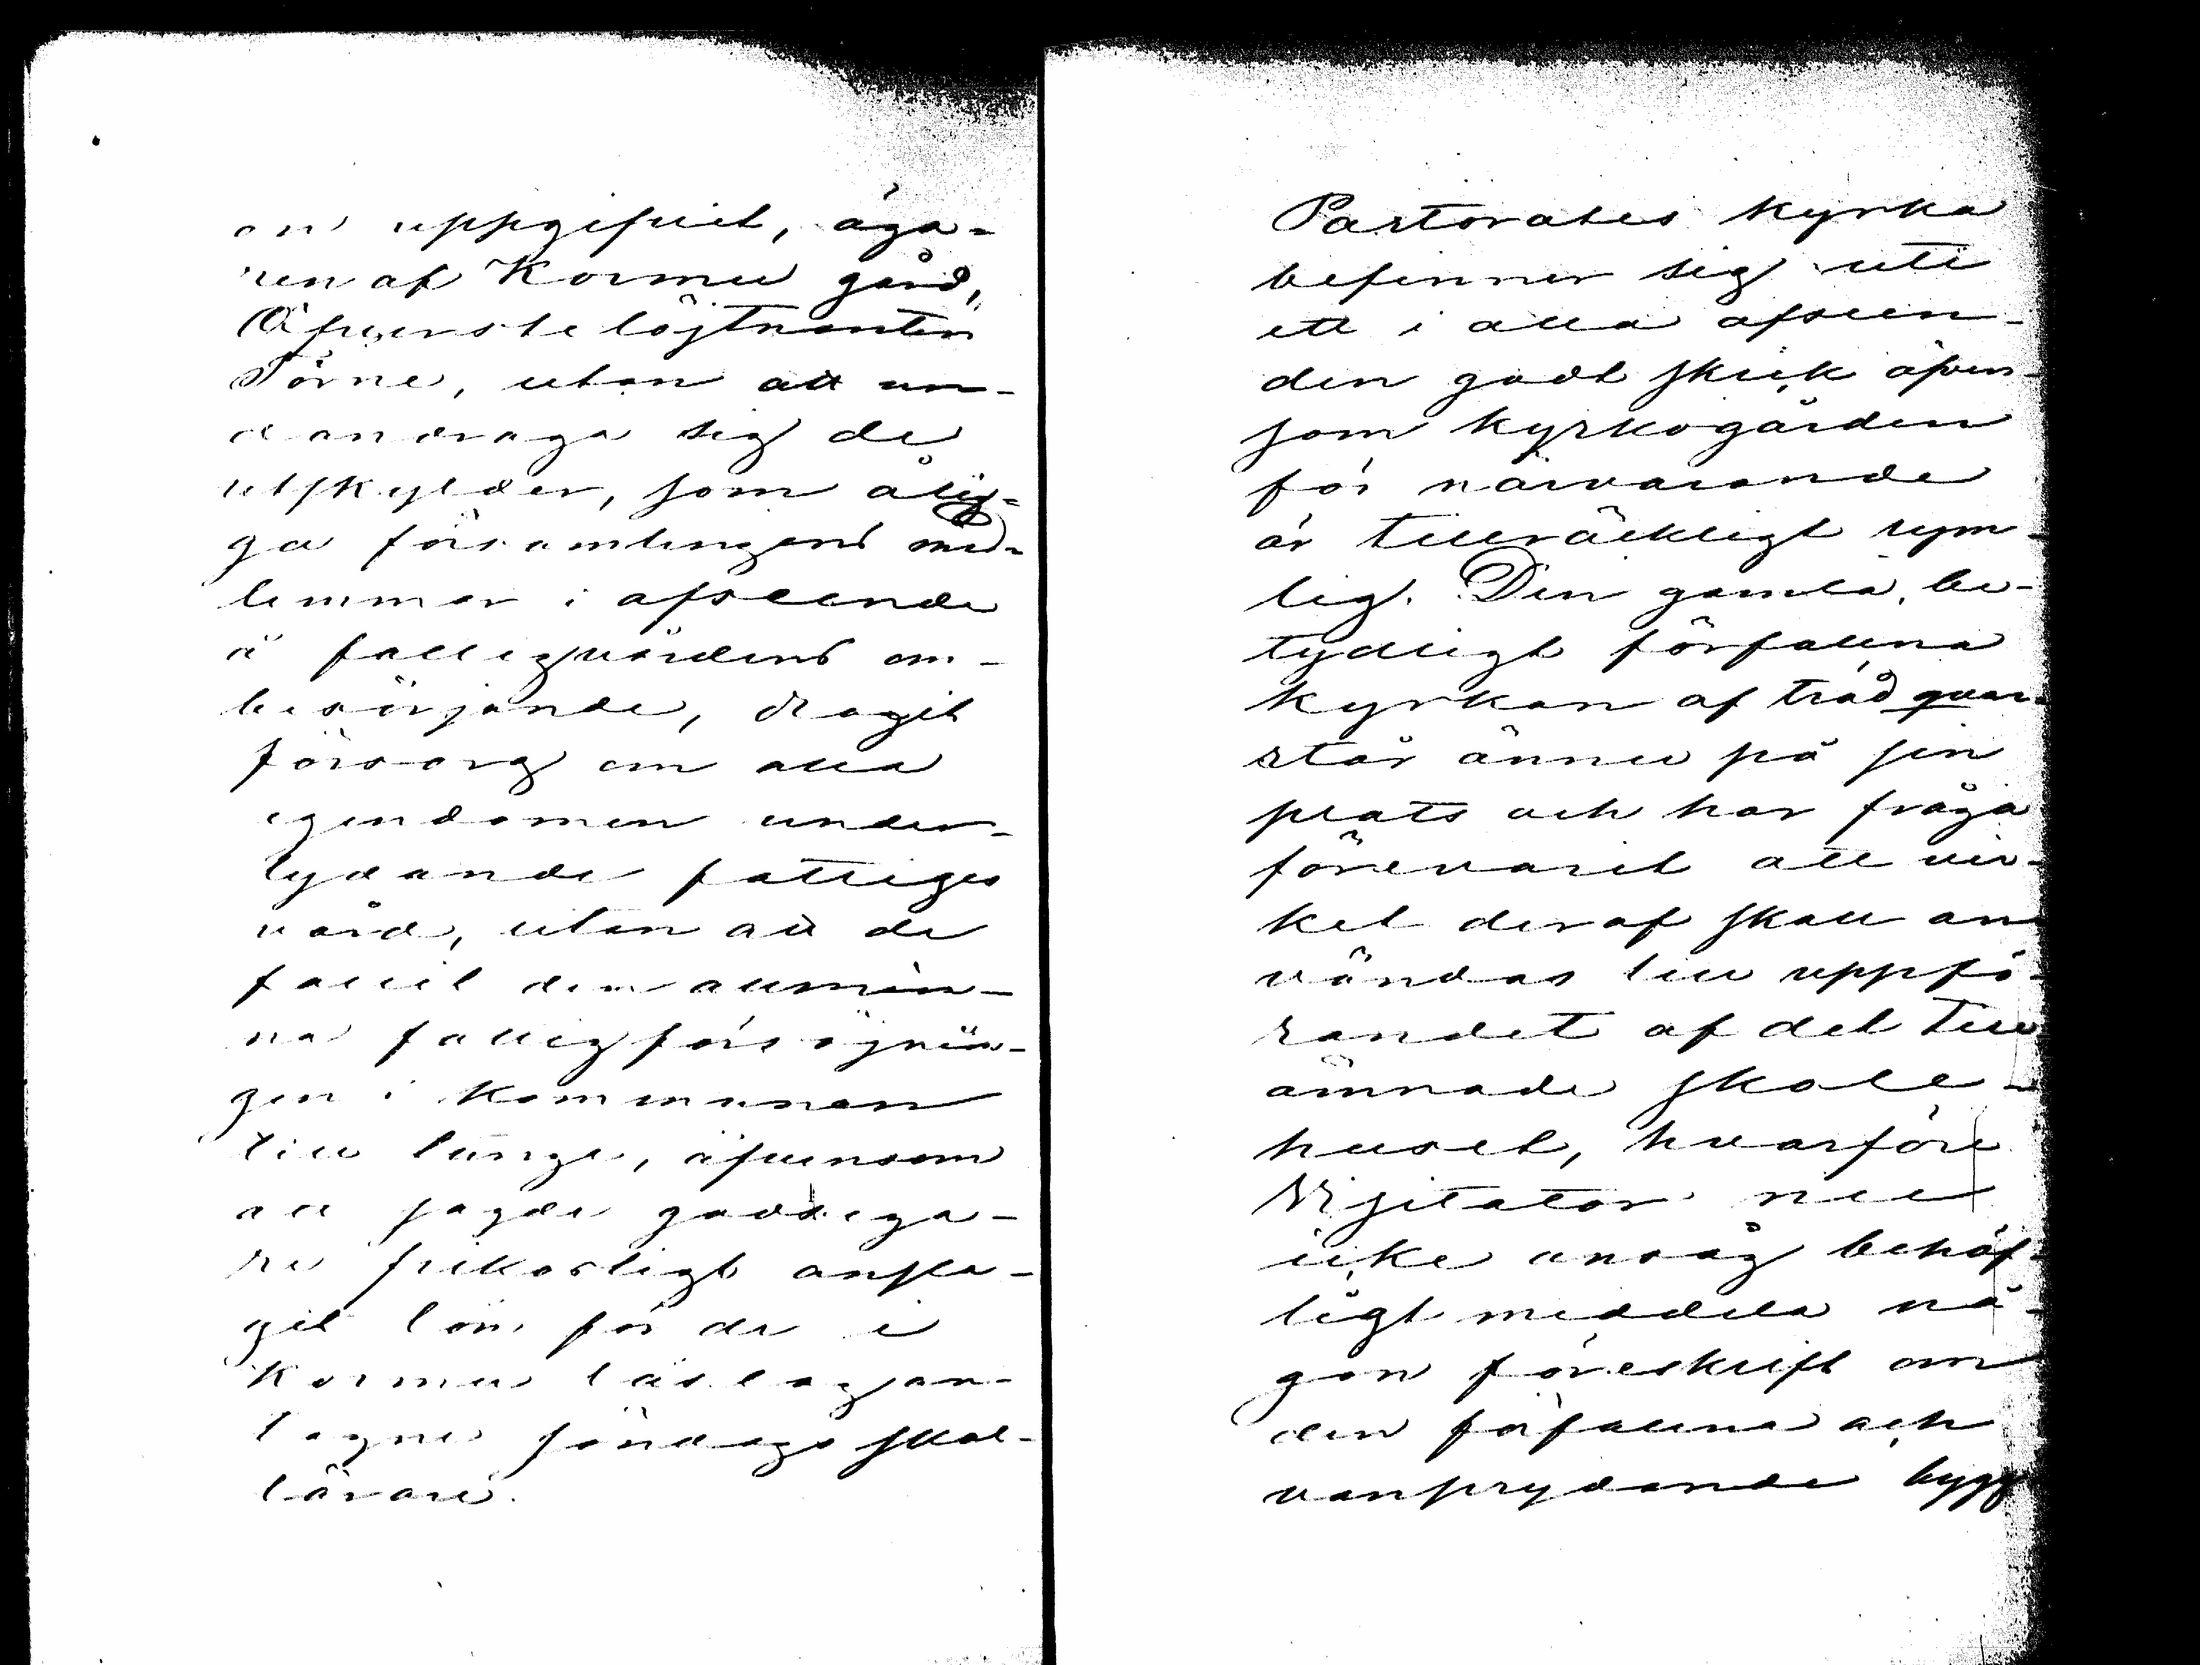 on uppgifvit, äga-
ren af Kormu gård,
Öfverste löjtnanten
Törne, utan att un-
dandraga sig de
utskylder, som ålig-
ga församlingens med-
lemmar i afseende
å fattigvårdens om-
besörjande, dragit
försorg om alla
egendomen under-
lydande fattiges
vård, utan att de
fallit den allmän-
na fattigförsörjnin-
gen i kommunen
till tunga, äfvensom
att sagde godsega-
re frikostigt ansla-
git lön för de i
Kormu läslag an-
tagne söndagsskol-
lärare.
Pastoratets kyrka
befinner sig uti
ett i alla afseen-
den godt skick äfven-
som kyrkogården
för närvarande
är tillräckligt rym-
lig. Den gamla, be-
tydligt förfallna
kyrkan af träd qvar-
står ännu på sin
plats och har fråga
förevarit att vir-
ket deraf skall an-
vändas till uppfö-
randet af det till-
ämnade skole-
huset, hvarföre
Visitator nu
icke ansåg behöf-
ligt meddela nå-
gon föreskrift om
den förfallna och
vanprydande bygg